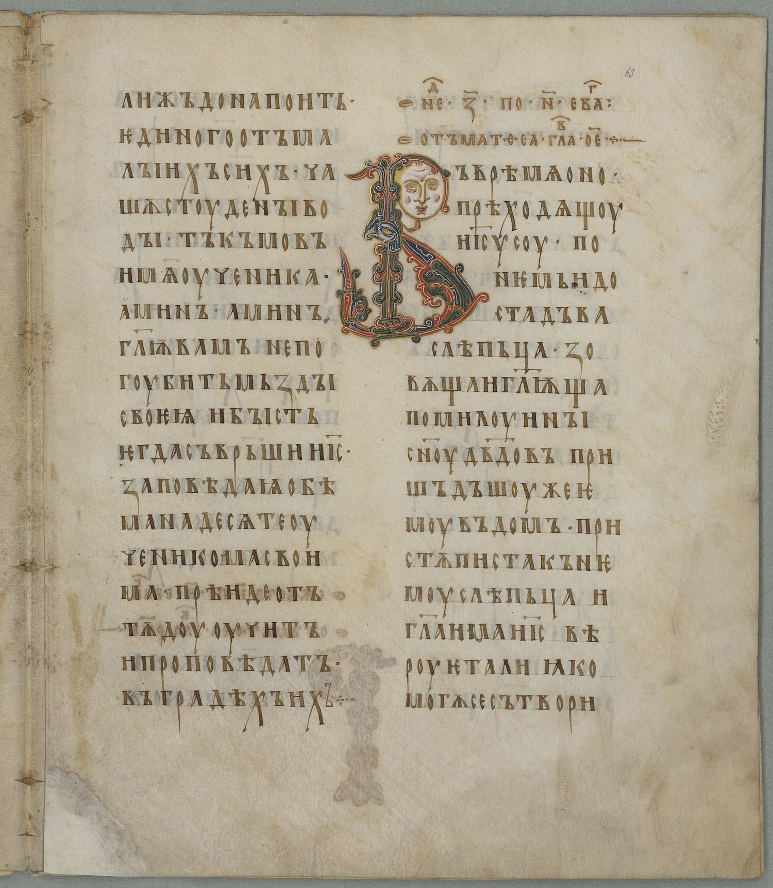 63
лижьдонапоить·
ѥдиногоотъма
лꙑихъсихъ·ча
шѫстоуденꙑво
дꙑ·тъкъмовъ
имѧоученика·
аминь·аминь
гл҃ѭвамънепо
гоубитьмьздꙑ
своѥꙗибꙑсть
ѥгдасъврьшиіс҃·
заповѣдаꙗобѣ
манадесѧтеоу
ченикомасвои
ма·прѣидеотъ
тѫдоуоучитъ
ипроповѣдатъ·
въградѣхъихъ
не·з҃·по·н҃·ева҃г:
отъмат·ѳеа·гла҃в·ое҃·
Въврѣмѧоно·
прѣходѧщоу
иі҃сусоу·по
немьидо
стадъва
слѣпьца·зо
вѧщаигл҃ѭща
помилоуинꙑ
сн҃оудв҃довъ при
шъдъшоужеѥ
моувъдомъ·при
стѫпистакън
моуслѣпьца и
гл҃аимаіс҃ вѣ
роуѥталиꙗко
могѫсесътвори